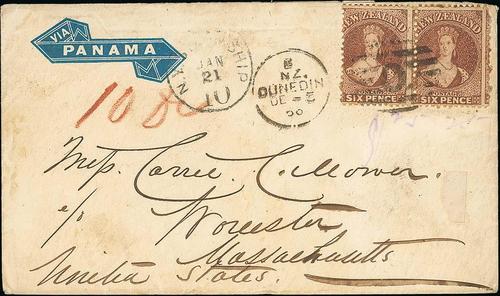 VIA
PANAMA
N.Y. SHIP
JAN
21
10
NZ.
DUNEDIN
DE
NEW ZEALAND
POSTAGE
SIX PENCE
NEW ZEALAND
POSTAGE
SIX PENCE
10
Miss. Carrie. C. Mower.
c/o
Worcester
Massachusetts
United States.